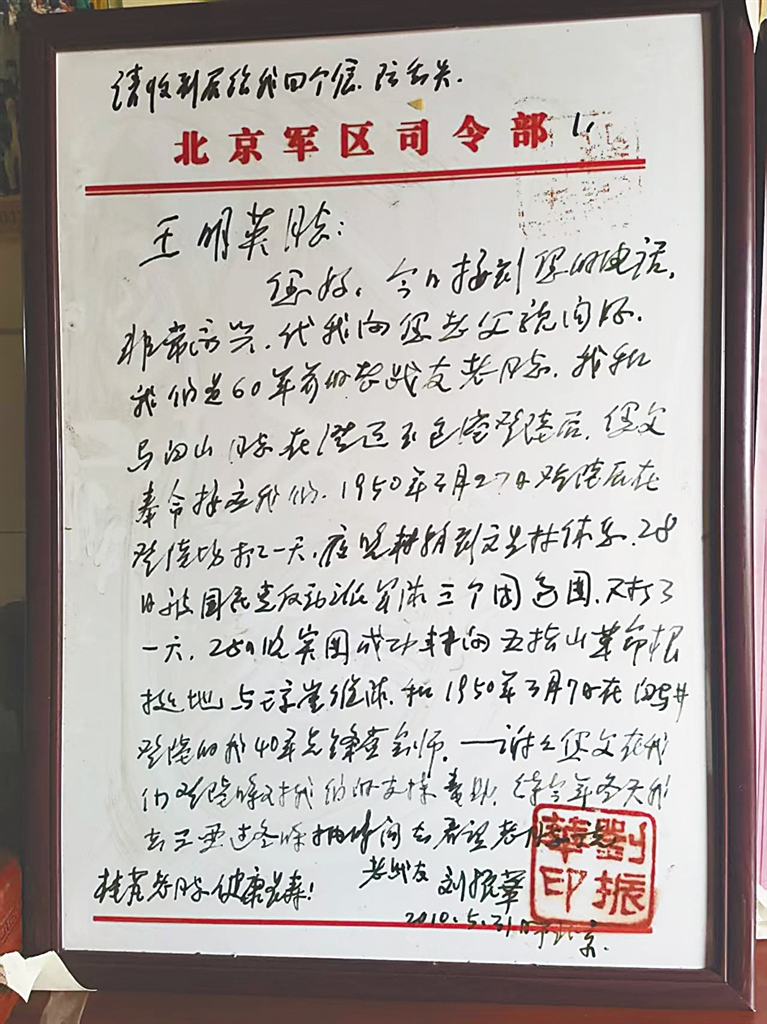 请收到后给我回个信, 防丢失.
北京军区司令部 1.
王明英同志:
您好, 今日接到您的电话,
非常高兴. 代我向您老父亲问好.
我们是60年前的老战友老同志. 我和
马白山同志在澄迈玉包港登陆后, 您父
奉命接应我们. 1950年3月27日登陆后在
登陆场打了一天, 后 到文生村休息. 28
日被国民党反动派军队三个团包围, 又打了
一天, 28日晚突围成功 向五指山革命根
据地与琼崖纵队, 和1950年3月7日在白马井
登陆的我40军先锋营会师. 谢谢您父在我
们登陆 对我们的支持帮助, 待今年冬天我
去三亚过冬时抽时间去看望老同
桂 老同志健康长寿!
老战友 刘振华
2010.5.31日于北京.
劉振華印